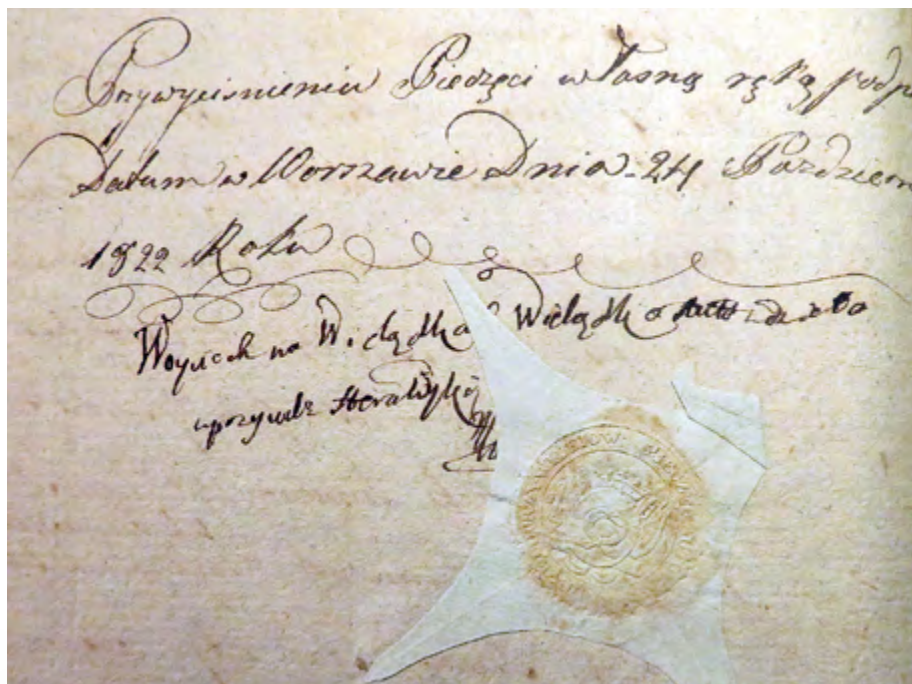 Przywyciśnieniu Pieczęci własną ręką podp
Datum w Warszawie Dnia 24 Paździer
1822 Roku
Woyciech na Wielądkach Wielądko
uprzywile Heraldyk